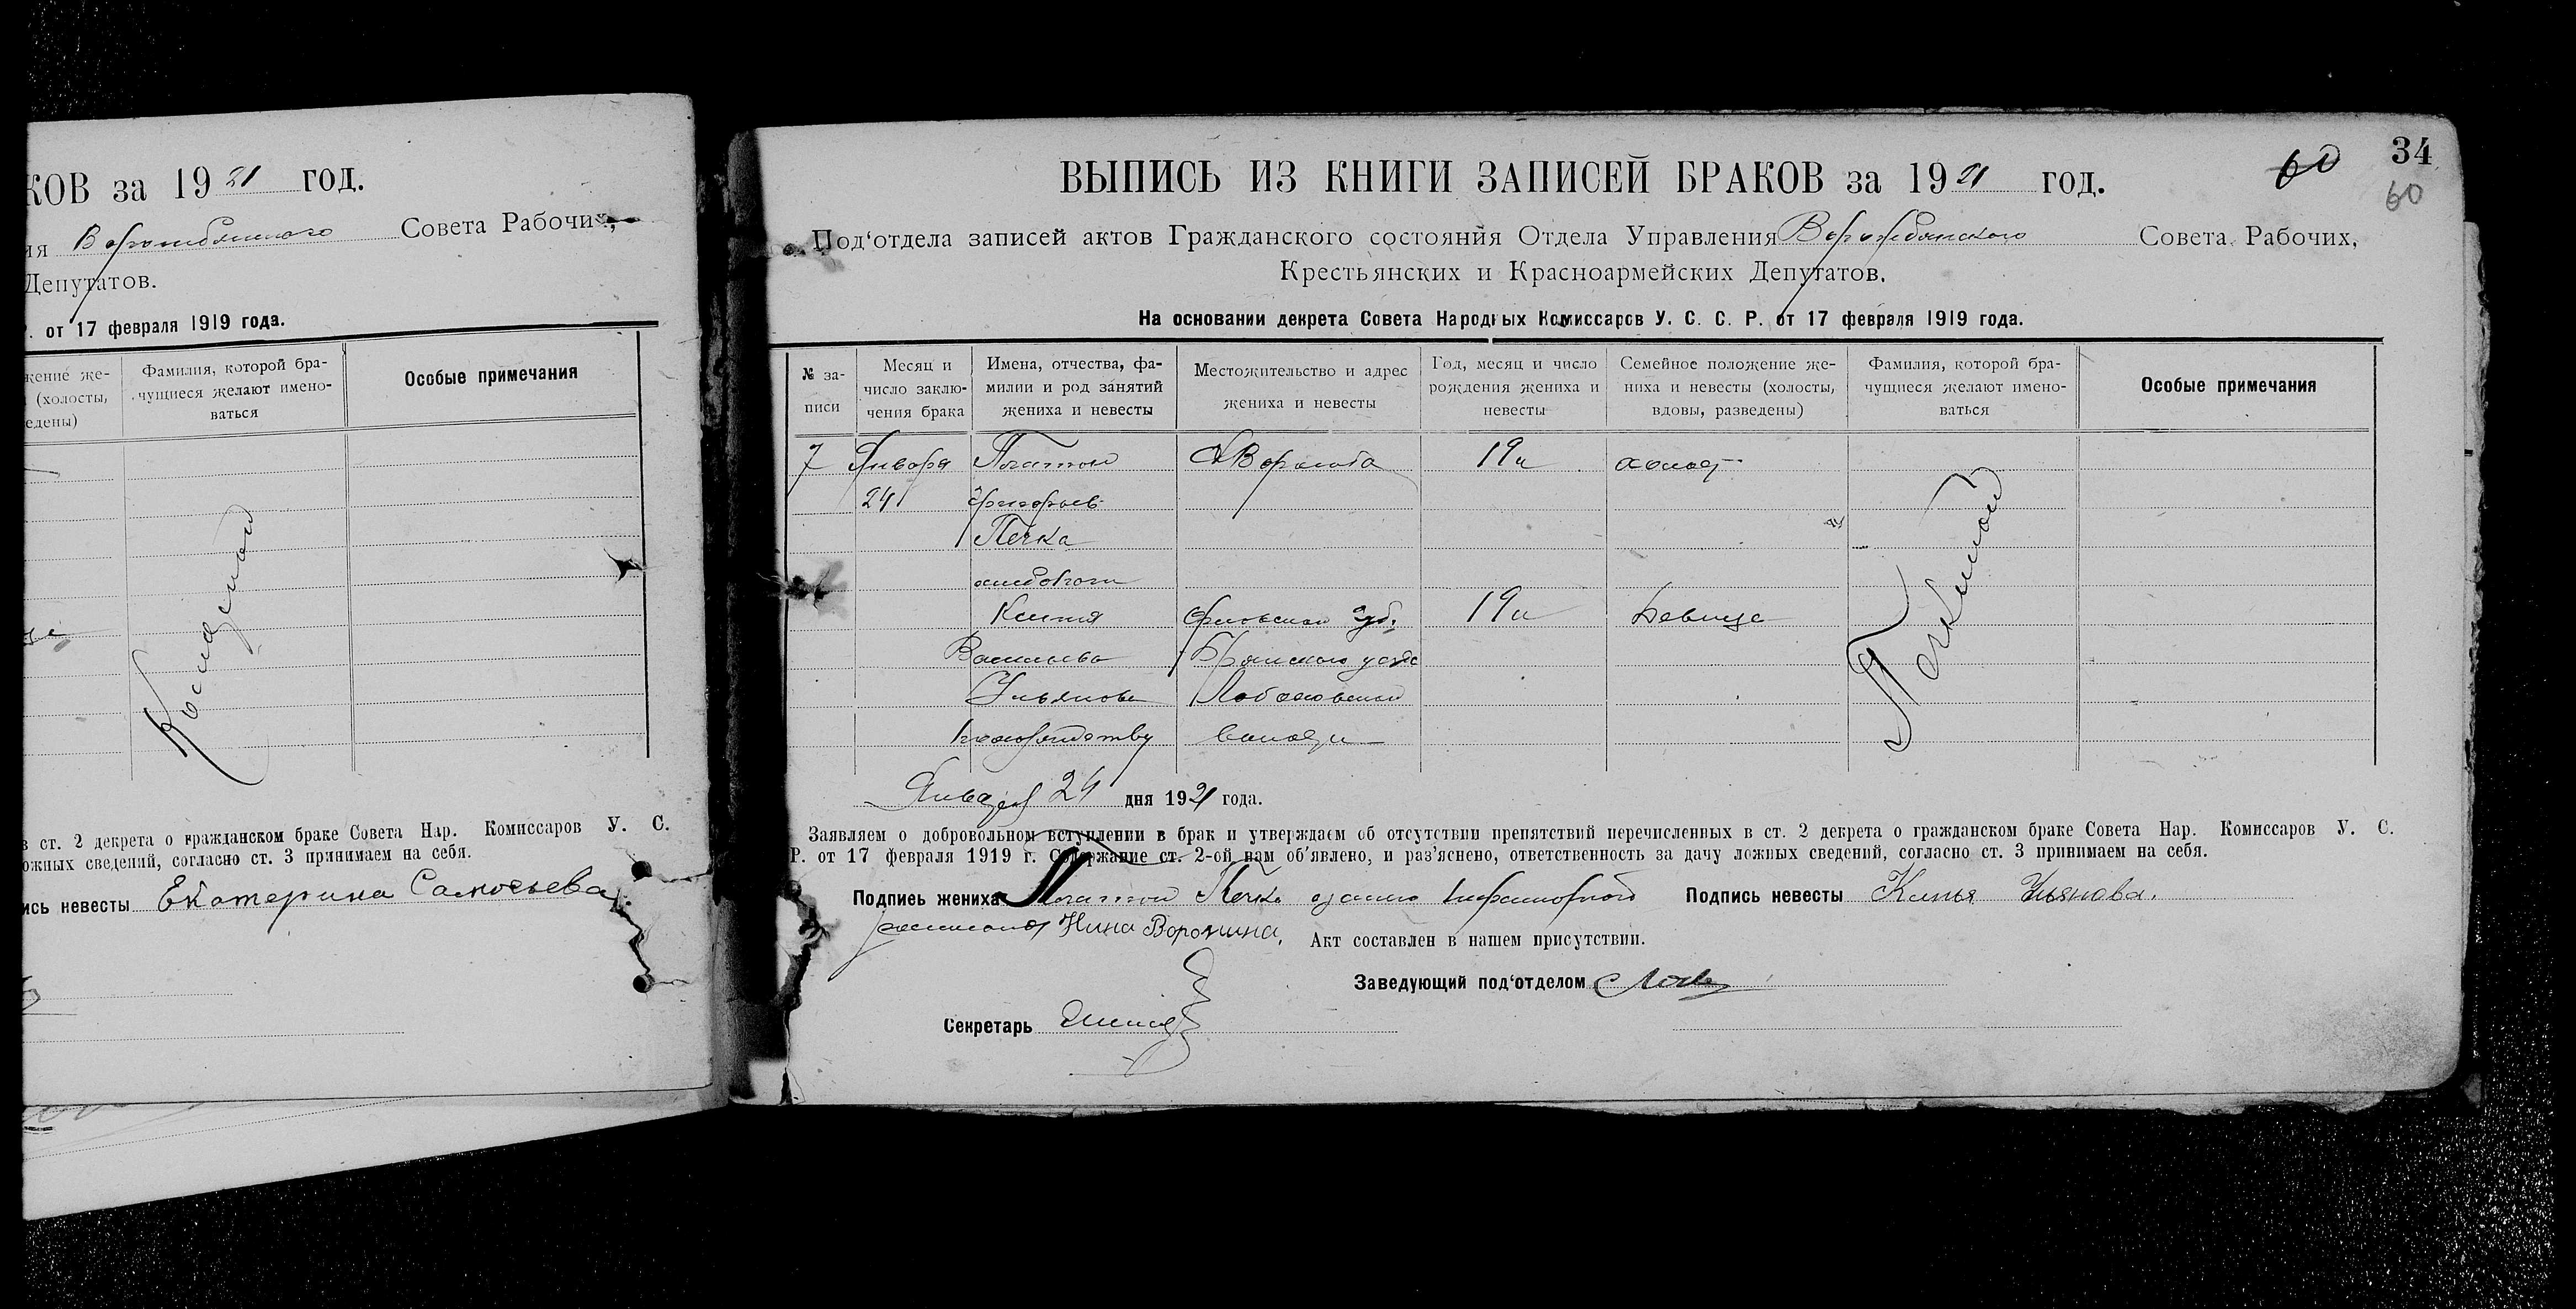 КОВ за 1921 год.
ия Ворожбянского Совета Рабочих,
Депутатов.
Р. от 17 февраля 1919 года.
жение же-
(холосты,
едены)
Фамилия, которой бра-
чущиеся желают имено-
ваться
Особые примечания
в ст. 2 декрета о гражданском браке Совета Нар. Комиссаров У. С.
ожных сведений, согласно ст. 3 принимаем на себя.
ись невесты Екатерина
34
60
60
ВЫПИСЬ ИЗ КНИГИ ЗАПИСЕЙ БРАКОВ за 1921 год.
Под‘отдела записей актов Гражданского состояния Отдела Управления Ворожбянского Совета Рабочих,
Крестьянских и Красноармейских Депутатов.
На основании декрета Совета Народных Комиссаров У. С. С. Р. от 17 февраля 1919 года.
№ за-
писи
Месяц и
число заклю-
чения брака
Имена, отчества, фа-
милии и род занятий
жениха и невесты
Местожительство и адрес
жениха и невесты
Год, месяц и число
рождения жениха и
невесты
Семейное положение же-
ниха и невесты (холосты,
вдовы, разведены)
Фамилия, которой бра-
чущиеся желают имено-
ваться
Особые примечания
7 Января Платон Ворожба 19 холост
24 Григорьев
Печка
хлебопаш
Ксения Орловской губ. 19 Девица
Васильева Брянского уезда
Ульянова
волости
Января 24 дня 1921 года.
Заявляем о добровольном вступлении в брак и утверждаем об отсутствии препятствий перечисленных в ст. 2 декрета о гражданском браке Совета Нар. Комиссаров У. С.
Р. от 17 февраля 1919 г. Содержание ст. 2-ой нам об‘явлено, и раз‘яснено, ответственность за дачу ложных сведений, согласно ст. 3 принимаем на себя.
Подпись жениха Платон Печка Подпись невесты Ульянова.
Нина Воронина,
Акт составлен в нашем присутствии.
Заведующий под‘отделом
Секретарь